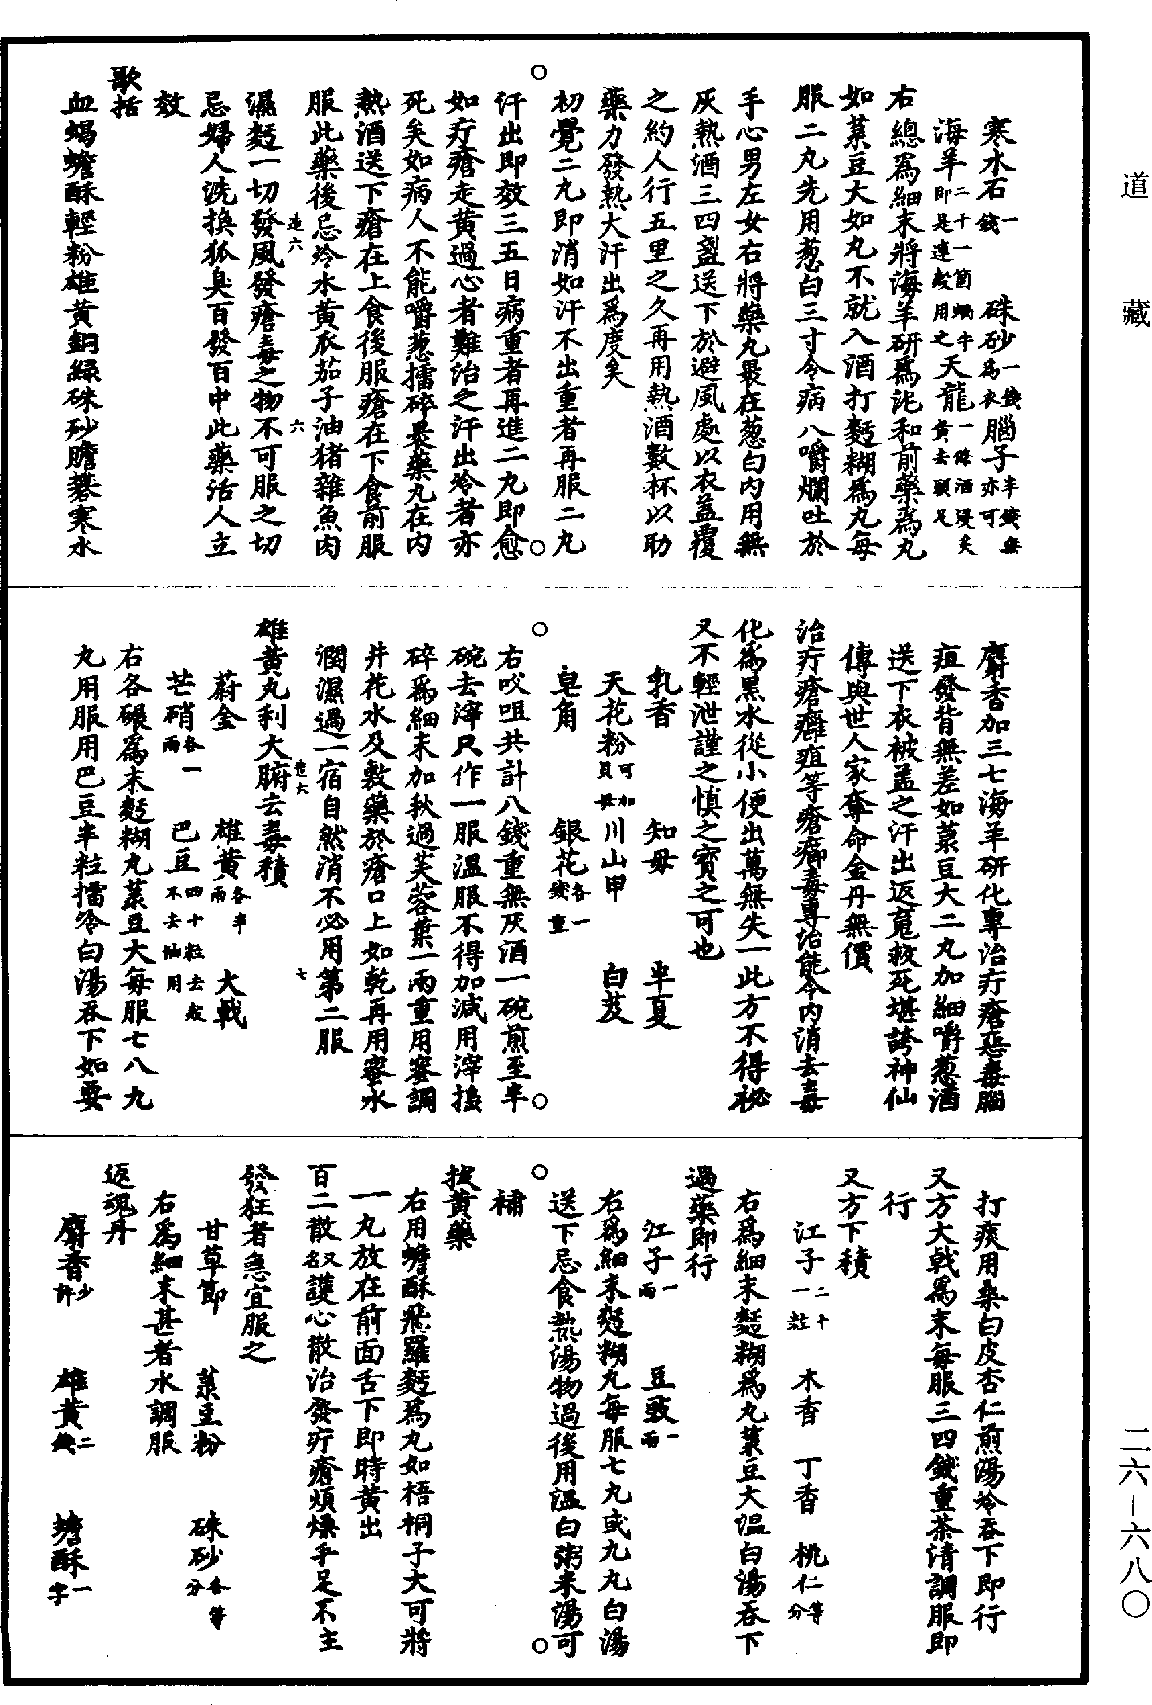 道藏
寒水石一錢　硃砂一錢為衣　腦子半錢無亦可
海羊二十一箇蝸牛即是連殼用之　天龍一條酒浸炙黃去頭足
右總爲細末將海羊研爲泥和前藥爲丸
如菉豆大如丸不就入酒打麪糊爲丸每
服二丸先用葱白三寸令病人嚼爛吐於
手心男左女右將藥丸裹在葱白內用無
灰熱酒三四盞送下於避風處以衣蓋覆
之約人行五里之久再用熱酒數杯以助
藥力發熱大汗出爲度矣
初覺二丸即消如汗不出重者再服二丸
汗出即效三五日病重者再進二丸即愈
如疔瘡走黃過心者難治之汗出冷者亦
死矣如病人不能嚼葱擂碎裹藥丸在內
熱酒送下瘡在上食後服瘡在下食前服
服此藥後忌冷水黃衣茄子油猪雜魚肉
濕麪一切發風發瘡毒之物不可服之切
忌婦人洗換狐臭百發百中此藥活人立
效
歌括
血蝎蟾酥輕粉雄黃銅綠硃砂膽礬寒水
麝香加三七海羊研化專治疔瘡惡毒腦
疽發背無差如菉豆大二丸加細嚼葱酒
送下衣被蓋之汗出返寬救死堪誇神仙
傳與世人家奪命金丹無價
治疔瘡癰疽等瘡癤毒專治能令內消去毒
化爲黑水從小便出萬無失一此方不得秘
又不輕泄謹之慎之寶之可也
乳香　知母　半夏
天花粉可加貝母　川山甲　白芨
皂角　銀花各一錢重
右㕮咀共計八錢重無灰酒一碗煎至半
碗去滓只作一服溫服不得加減用滓搗
碎爲細末加秋過芙蓉葉一兩重用蜜調
井花水及敷藥於瘡口上如乾再用蜜水
潤濕過一宿自然消不必用第二服
雄黃丸利大腑去毒積
蔚金　雄黃各半兩　大戟
芒硝各一兩　巴豆四十粒去殼不去油用
右各碾爲末麪糊丸菉豆大每服七八九
丸用服用巴豆半粒擂冷白湯吞下如要
打痰用桑白皮杏仁煎湯冷吞下即行
又方大戟爲末每服三四錢重茶清調服即
行
又方下積
江子二十一粒　木香　丁香　桃仁等分
右爲細末麪糊爲丸菉豆大溫白湯吞下
過藥即行
江子一兩　豆豉一兩
右爲細末麪糊丸每服七丸或九丸白湯
送下忌食熱湯物過後用溫白粥米湯可
補
拔黃藥
右用蟾酥飛羅麪爲丸如梧桐子大可將
一丸放在前面舌下即時黃出
百二散又名護心散治發疔瘡煩燥手足不主
發狂者急宜服之
甘草節　菉豆粉　硃砂各等分
右爲細末甚者水調服
返魂丹
麝香少許　雄黃二錢　蟾酥一字
二六—六八〇